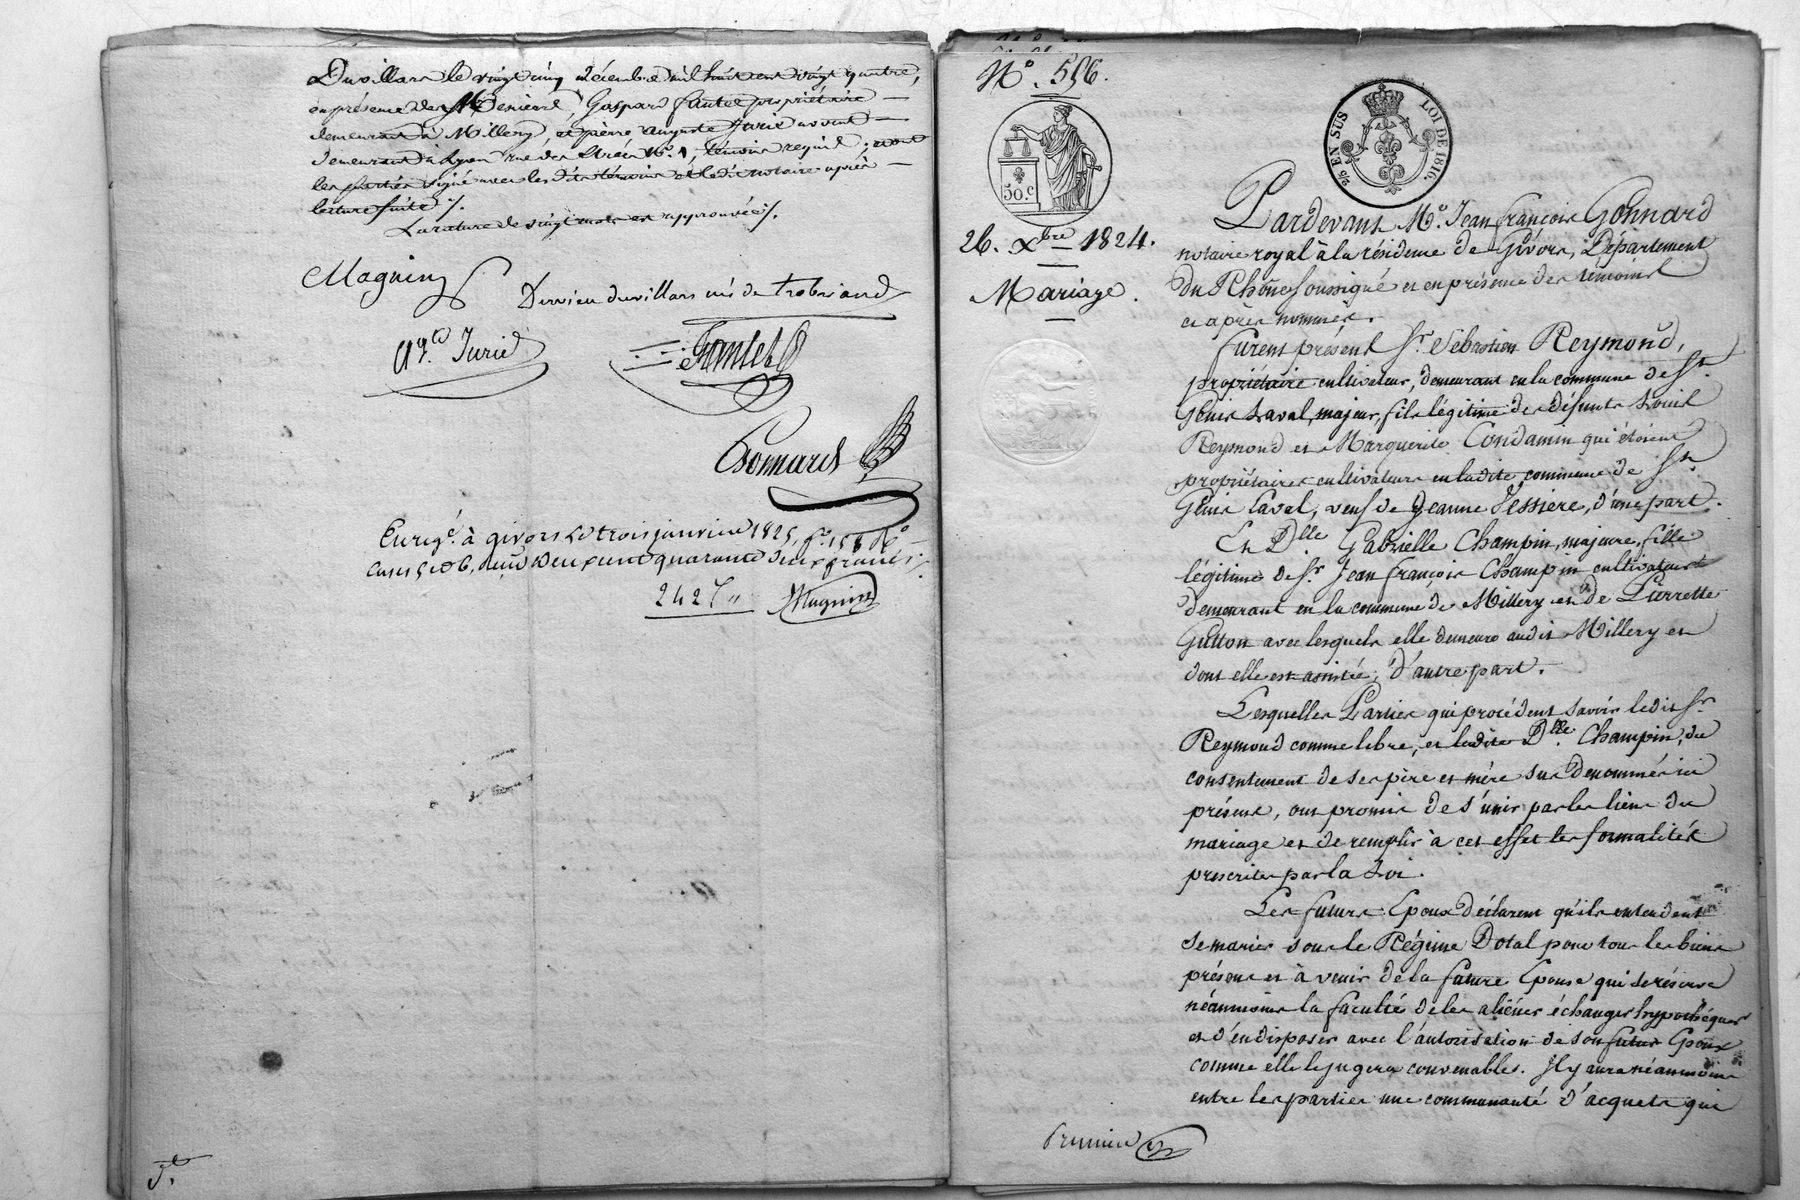 Duvillars le vingt cinq Décembre mil huit cent vingt quatre,
en présence de Gaspard fautel propriétaire
demeurant à Millery, et pierre auguste Jurie avocat
demeurant à Lyon rue des N°. 1, témoins requis, ont
les parties signé avec les dits témoins et ledit notaire après
lecture faite ./.
La rature de vingt mots est approuvée ./.
Magnin
Dervieu duvillars née de trobriand
Ag.te Jurie
Gonnard
Enregé. à givors le trois janvier 1825, f°. 158 R°
cases 5 et 6, reçu deux cent quarante deux francs
242 f "
Magnin
N°. 556.
50 c.
26. Xbre 1824.
Mariage.
2/5 EN SUS
LOI DE 1816.
Pardevant Me. Jean françois Gonnard
notaire royal à la résidence de Givors, Département
du Rhône soussigné et en présence des témoins
ci après nommés.
furent présent Sr. Sébastien Reymond,
propriétaire cultivateur, demeurant en la commune de St.
Genis Laval, majeur, fils légitime des défunts Louis
Reymond et Marguerite Condamin qui étoient
propriétaires cultivateurs en ladite commune de St.
Genis Laval, veuf de Jeanne Tessiere, d'une part.
Et Dlle. Gabrielle Champin, majeure, fille
légitime de Sr. Jean françois Champin cultivateur
demeurant en la commune de Millery et de Pierrette
Guiton avec lesquels elle demeure audit Millery et
dont elle est assistée, d'autre part.
Lesquelles Parties qui procèdent savoir ledit Sr.
Reymond comme libre, et ladite Dlle. Champin, du
consentement de ses père et mère sus dénommés ici
présent, ont promis de s'unir par les liens du
mariage et de remplir à cet effet les formalités
prescrites par la Loi.
Les futurs Epoux déclarent qu'ils entendent
se marier sous le Régime Dotal pour tous les biens
présents et à venir de la future Epouse qui se réserve
néanmoins la faculté de les aliéner échanger hypothéquer
et d'en disposer avec l'autorisation de son futur Epoux
comme elle le jugera convenables. Il y aura néanmoins
entre les parties une communauté d'acquets qui
Premier